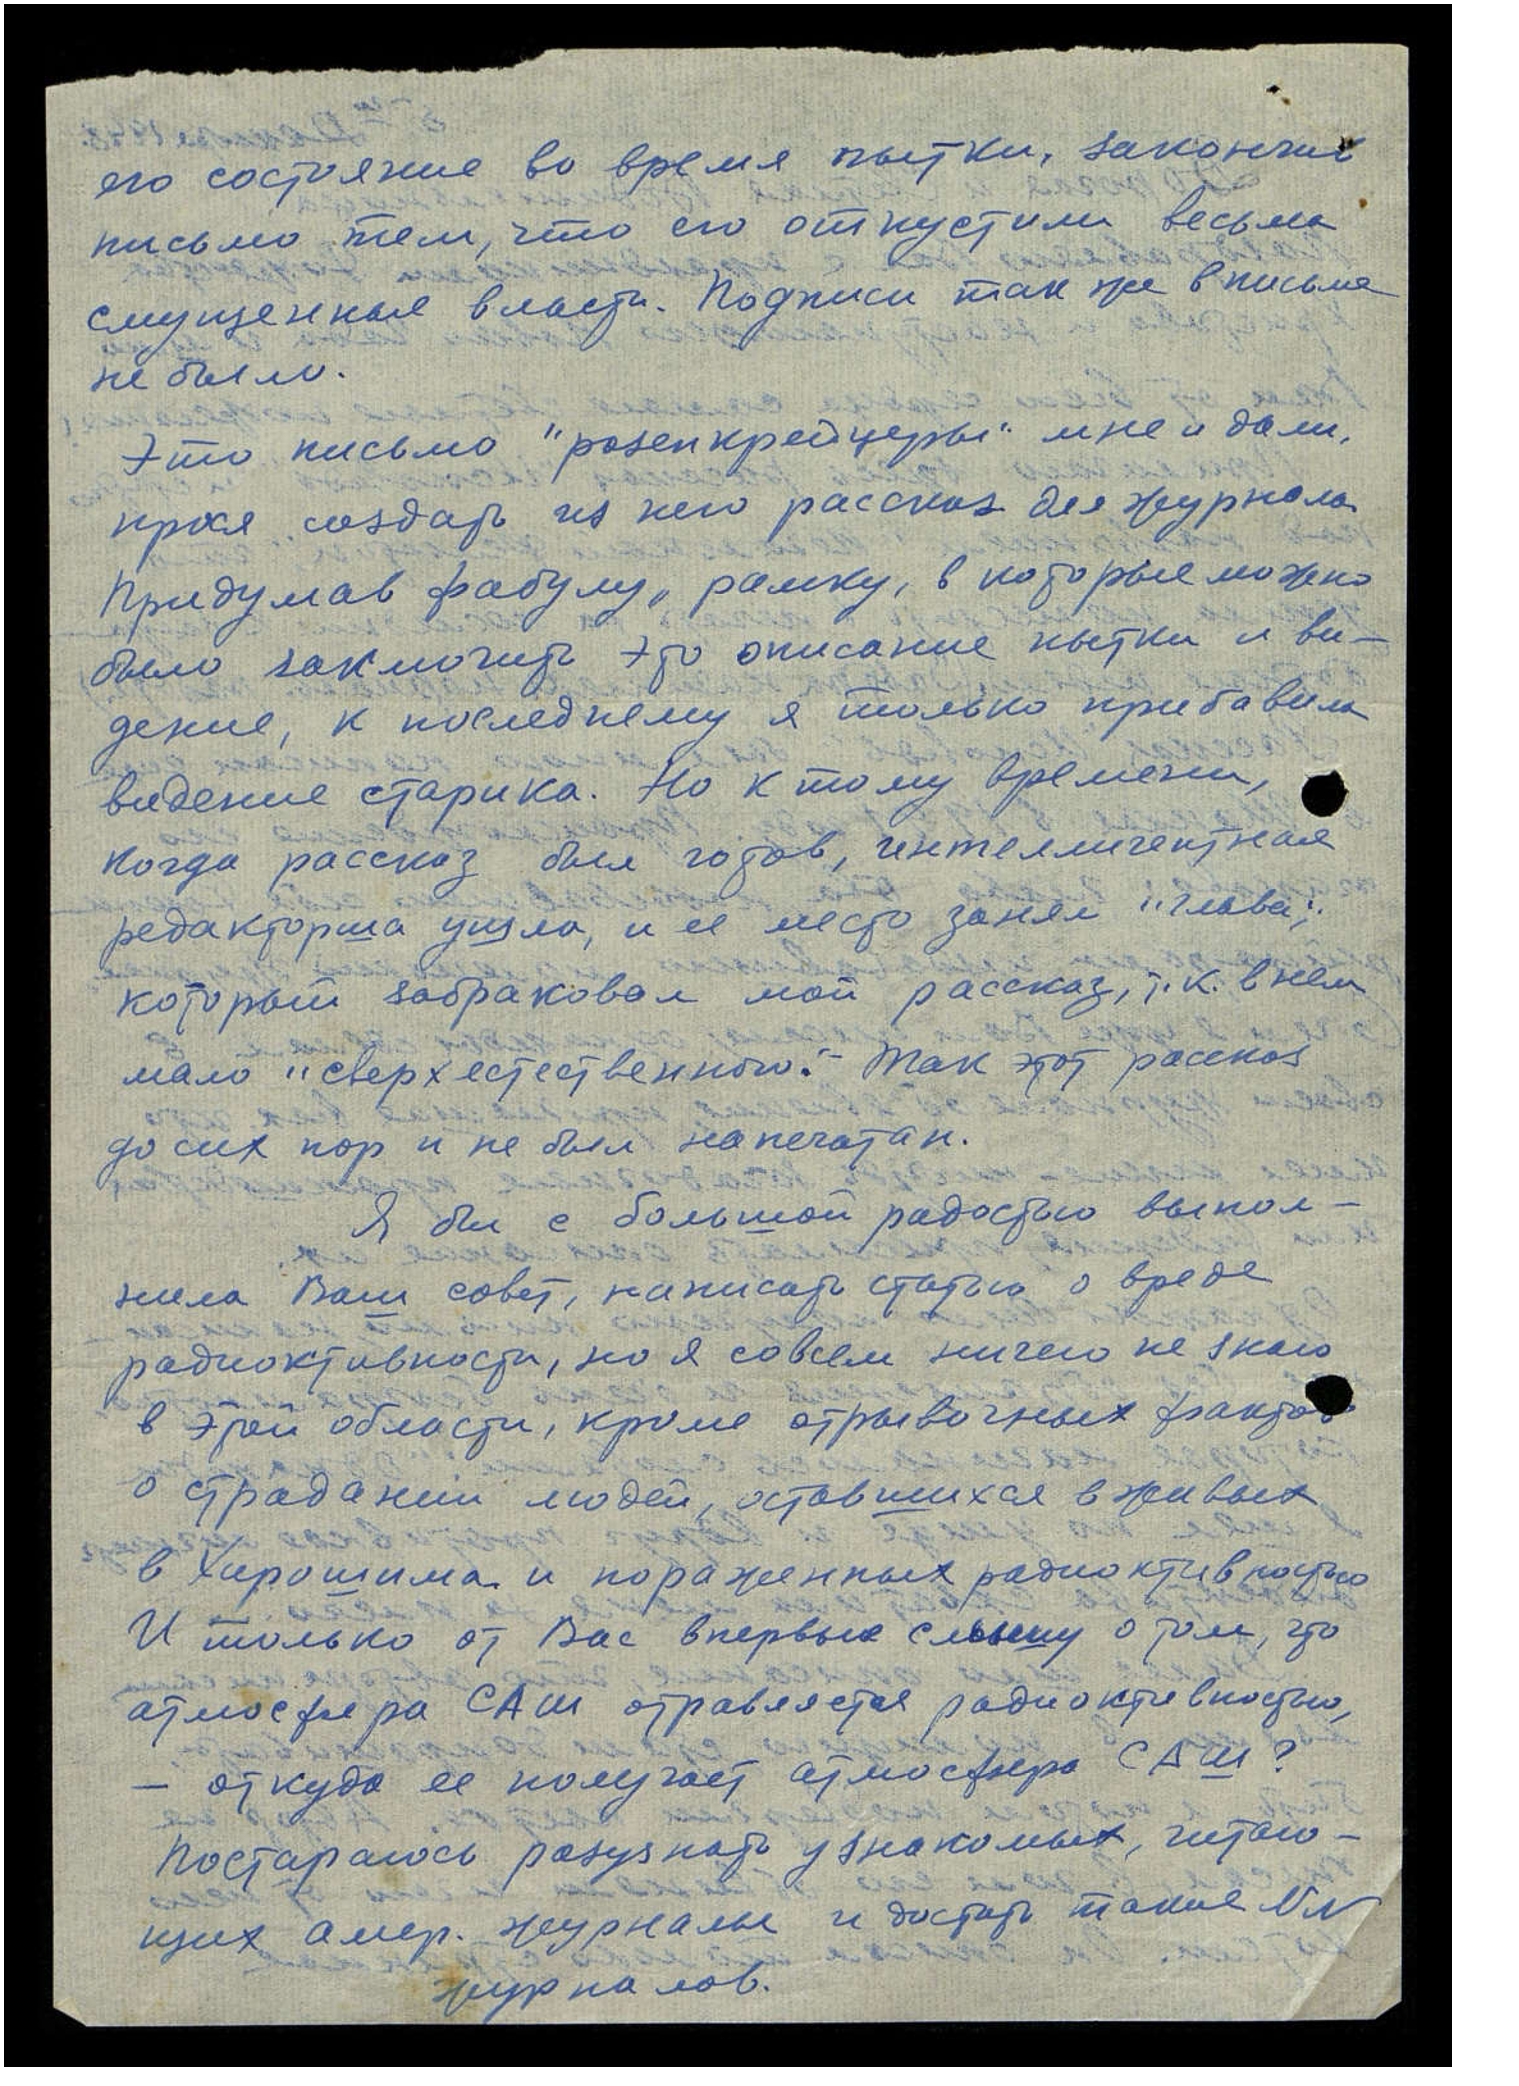 его состояние во время пытки, закончив
письмо тем, что его отпустили весьма
смущенныя власти. Подписи так же в письме
не было.
Это письмо "розенкрейцеры" мне и дали,
прося создать из него рассказ для журнала.
Придумав фабулу, рамку, в которые можно
было заключить это описание пытки и ви-
дение, к последнему я только прибавила
видение старика. Но к тому времени,
когда рассказ был готов, интеллигентная
редакторша ушла, и ее место занял "глава",
который забраковал мой рассказ, т.к. в нем
мало "сверхестественного". Так этот рассказ
до сих пор и не был напечатан.
Я бы с большой радостью выпол-
нила Ваш совет, написать статью о вреде
радиоктивности, но я совсем ничего не знаю
в этой области, кроме отрывочных фактов
о страдании людей, оставшихся в живых
в Хирошима и пораженных радиоктивностью
И только от Вас впервые слышу о том, что
атмосфера САШ отравляется радиоктивностью,
— откуда ее получает атмосфера САШ?
Постараюсь разузнать у знакомых, читаю-
щих амер. журналы и достать такие NN
журналов.